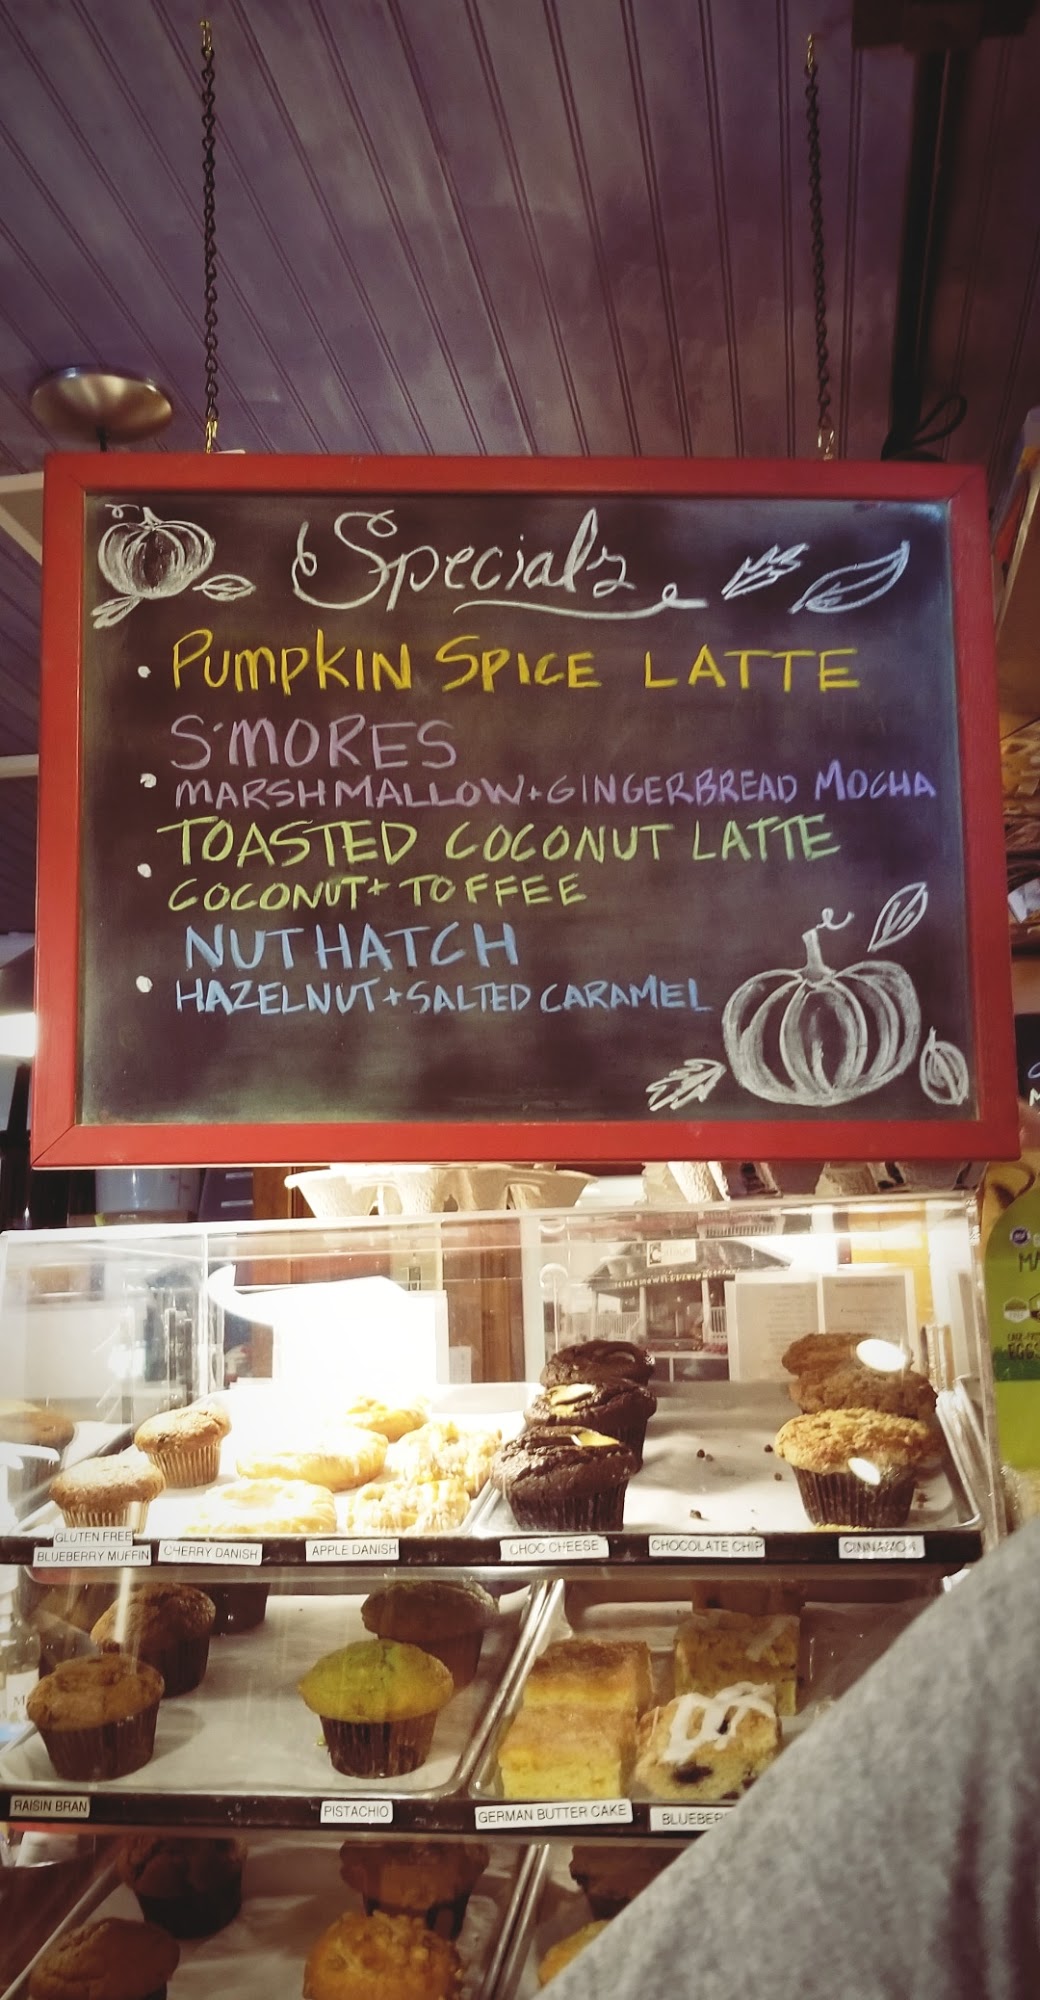 Specials
• PUMPKIN SPICE LATTE
S'MORES
• MARSHMALLOW + GINGERBREAD MOCHA
TOASTED COCONUT LATTE
• COCONUT + TOFFEE
NUTHATCH
• HAZELNUT + SALTED CARAMEL
GLUTEN FREE
BLUEBERRY MUFFIN
CHERRY DANISH
APPLE DANISH
CHOC CHEESE
CHOCOLATE CHIP
CINNAMON
RAISIN BRAN
PISTACHIO
GERMAN BUTTER CAKE
EGGS